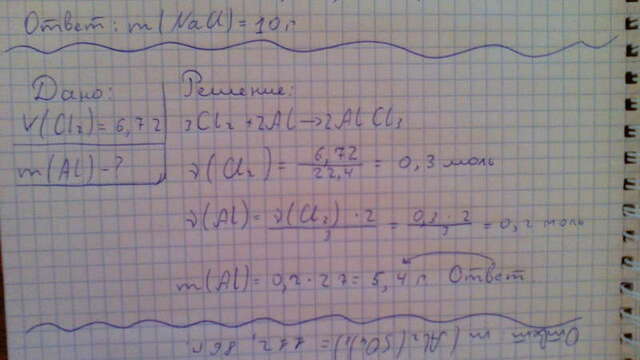 Ответ: m(NaCl) = 10 г
Дано:
V(Cl₂) = 6,72
m(Al) - ?
Решение:
3Cl₂ + 2Al → 2AlCl₃
ν(Cl₂) = 6,72 / 22,4 = 0,3 моль
ν(Al) = ν(Cl₂) · 2 / 3 = 0,3 · 2 / 3 = 0,2 моль
m(Al) = 0,2 · 27 = 5,4 г Ответ.
Ответ: m(Al₂(SO₄)₃) =